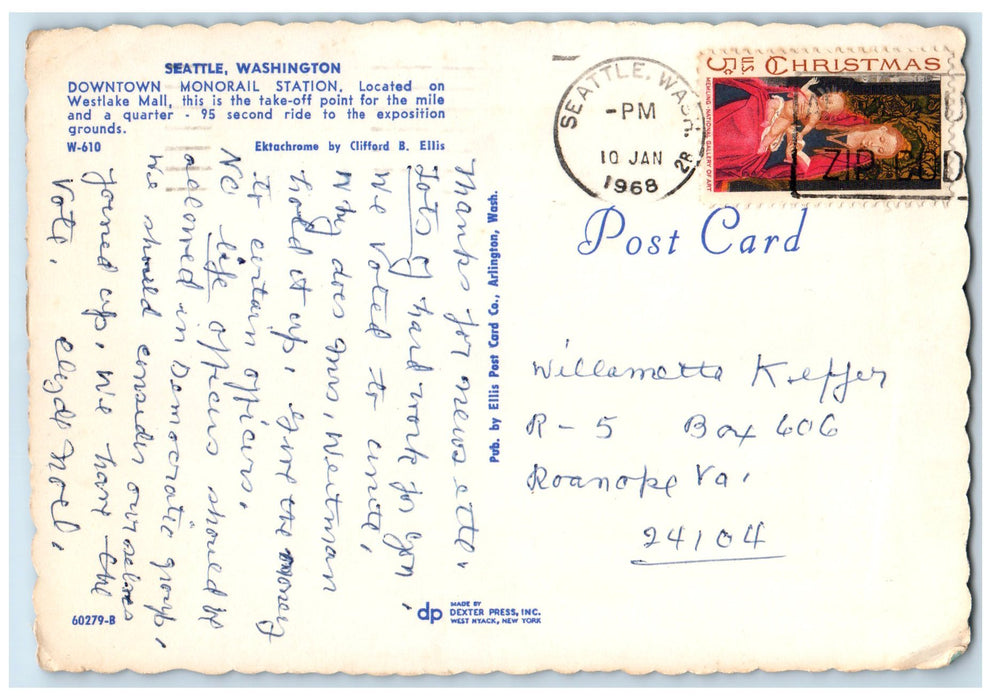 SEATTLE, WASHINGTON
DOWNTOWN MONORAIL STATION, Located on
Westlake Mall, this is the take-off point for the mile
and a quarter - 95 second ride to the exposition
grounds.
W-610 Ektachrome by Clifford B. Ellis
Thanks for news letter.
Lots of hard work for you,
we voted to unite,
Why does Mrs. Weitman
hold it up, give the money
to certain officers.
No life officers should be
allowed in Democratic group,
We should consider ourselves
joined up, we have the
vote. Clyde Noel.
Pub. by Ellis Post Card Co., Arlington, Wash.
60279-B
dp
MADE BY
DEXTER PRESS, INC.
WEST NYACK, NEW YORK
SEATTLE, WASH.
-PM
10 JAN
1968
5c U.S. CHRISTMAS
MEMLING: NATIONAL GALLERY OF ART
ZIP COD
Post Card
Willametta Kepfer
R-5 Box 606
Roanoke Va.
24104